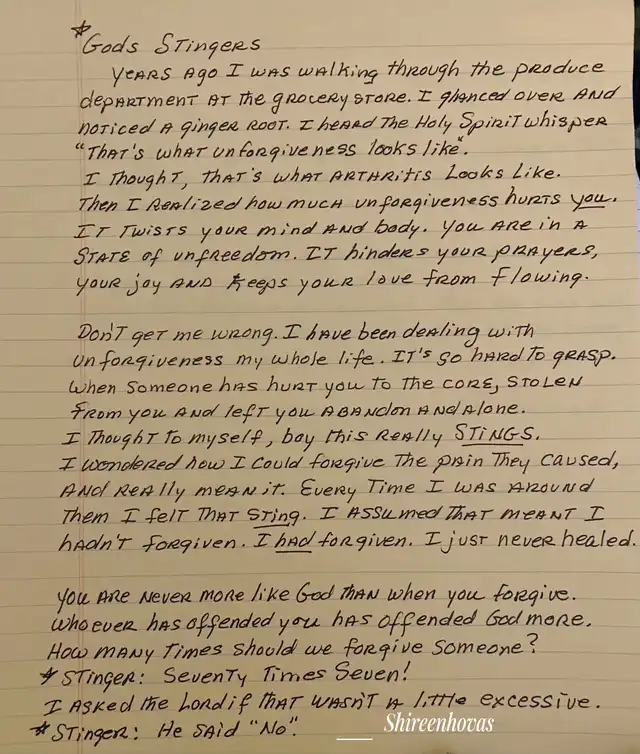 *
Gods Stingers
Years ago I was walking through the produce
department at the grocery store. I glanced over and
noticed a ginger root. I heard the Holy Spirit whisper
"That's what unforgiveness looks like".
I thought, that's what arthritis looks like.
Then I realized how much unforgiveness hurts you.
It twists your mind and body. You are in a
state of unfreedom. It hinders your prayers,
your joy and keeps your love from flowing.
Don't get me wrong. I have been dealing with
unforgiveness my whole life. It's so hard to grasp.
When someone has hurt you to the core, stolen
from you and left you abandon and alone.
I thought to myself, boy this really stings.
I wondered how I could forgive the pain they caused,
and really mean it. Every time I was around
them I felt that sting. I assumed that meant I
hadn't forgiven. I had forgiven. I just never healed.
You are never more like God than when you forgive.
Whoever has offended you has offended God more.
How many times should we forgive someone?
* Stinger: Seventy times seven!
I asked the Lord if that wasn't a little excessive.
* Stinger: He said "No".
Shireenhovas